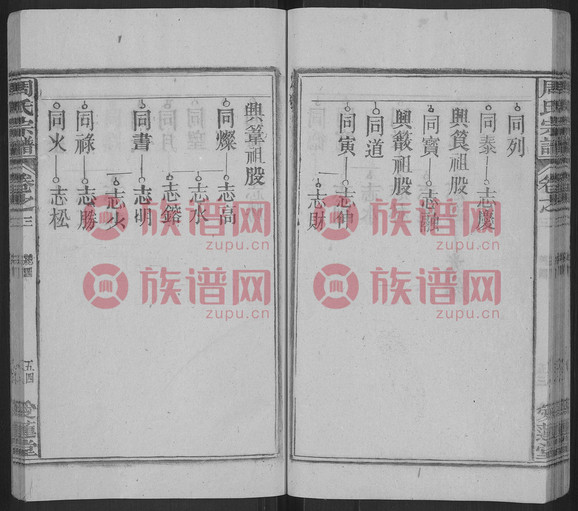 周氏宗譜
卷之三
愛蓮堂
同列
同泰 志慶
興箕祖股
同寶 志融
興簸祖股
同道
同寅 志神
志財
興篁祖股
同燦 志高
志水
志鎔
同書 志明
志火
同祿 志勝
同火 志松
周氏宗譜
卷之三
五四
愛蓮堂
族谱网
zupu.cn
族谱网
zupu.cn
族谱网
zupu.cn
族谱网
zupu.cn